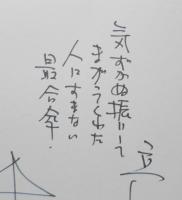 気ずかぬ振りして
まがってくれた
人にすまない
最合傘.